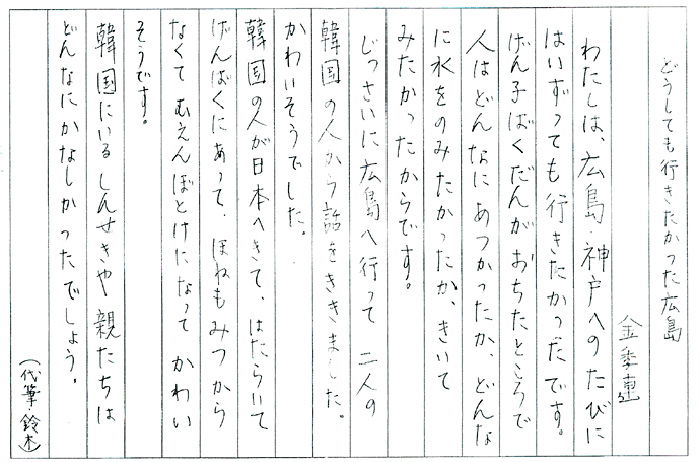 どうしても行きたかった広島
金季連
わたしは、広島・神戸へのたびに
はいずっても行きたかっだです。
げん子ばくだんがおちたところで
人はどんなにあつかったか、どんな
に水をのみたかったか、きいて
みたかったからです。
じっさいに広島へ行って 二人の
韓国の人から話をききました。
かわいそうでした。
韓国の人が日本へきて、はたらいて
げんばくにあって、ほねもみつから
なくて むえんぼとけになって かわい
そうです。
韓国にいるしんせきや親たちは
どんなにかなしかったでしょう。
（代筆・鈴木）